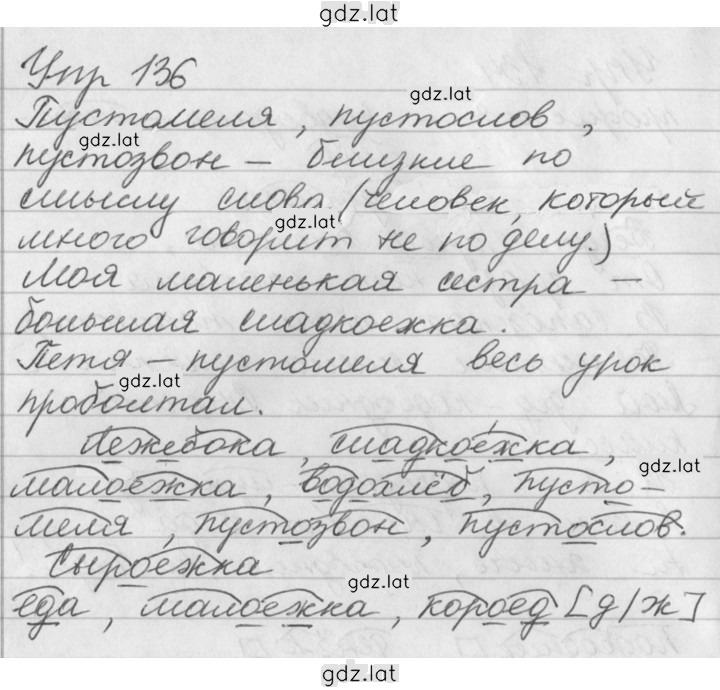 gdz.lat
Упр 136
gdz.lat
Пустомеля, пустослов,
gdz.lat
пустозвон – близкие по
смыслу слова (человек, который
gdz.lat
много говорит не по делу.)
Моя маленькая сестра –
большая сладкоежка.
Петя – пустомеля весь урок
gdz.lat
проболтал.
Лежебока, сладкоежка,
gdz.lat
малоежка, водохлёб, пусто-
меля, пустозвон, пустослов.
Сыроежка
gdz.lat
еда, малоежка, короед [д/ж]
gdz.lat